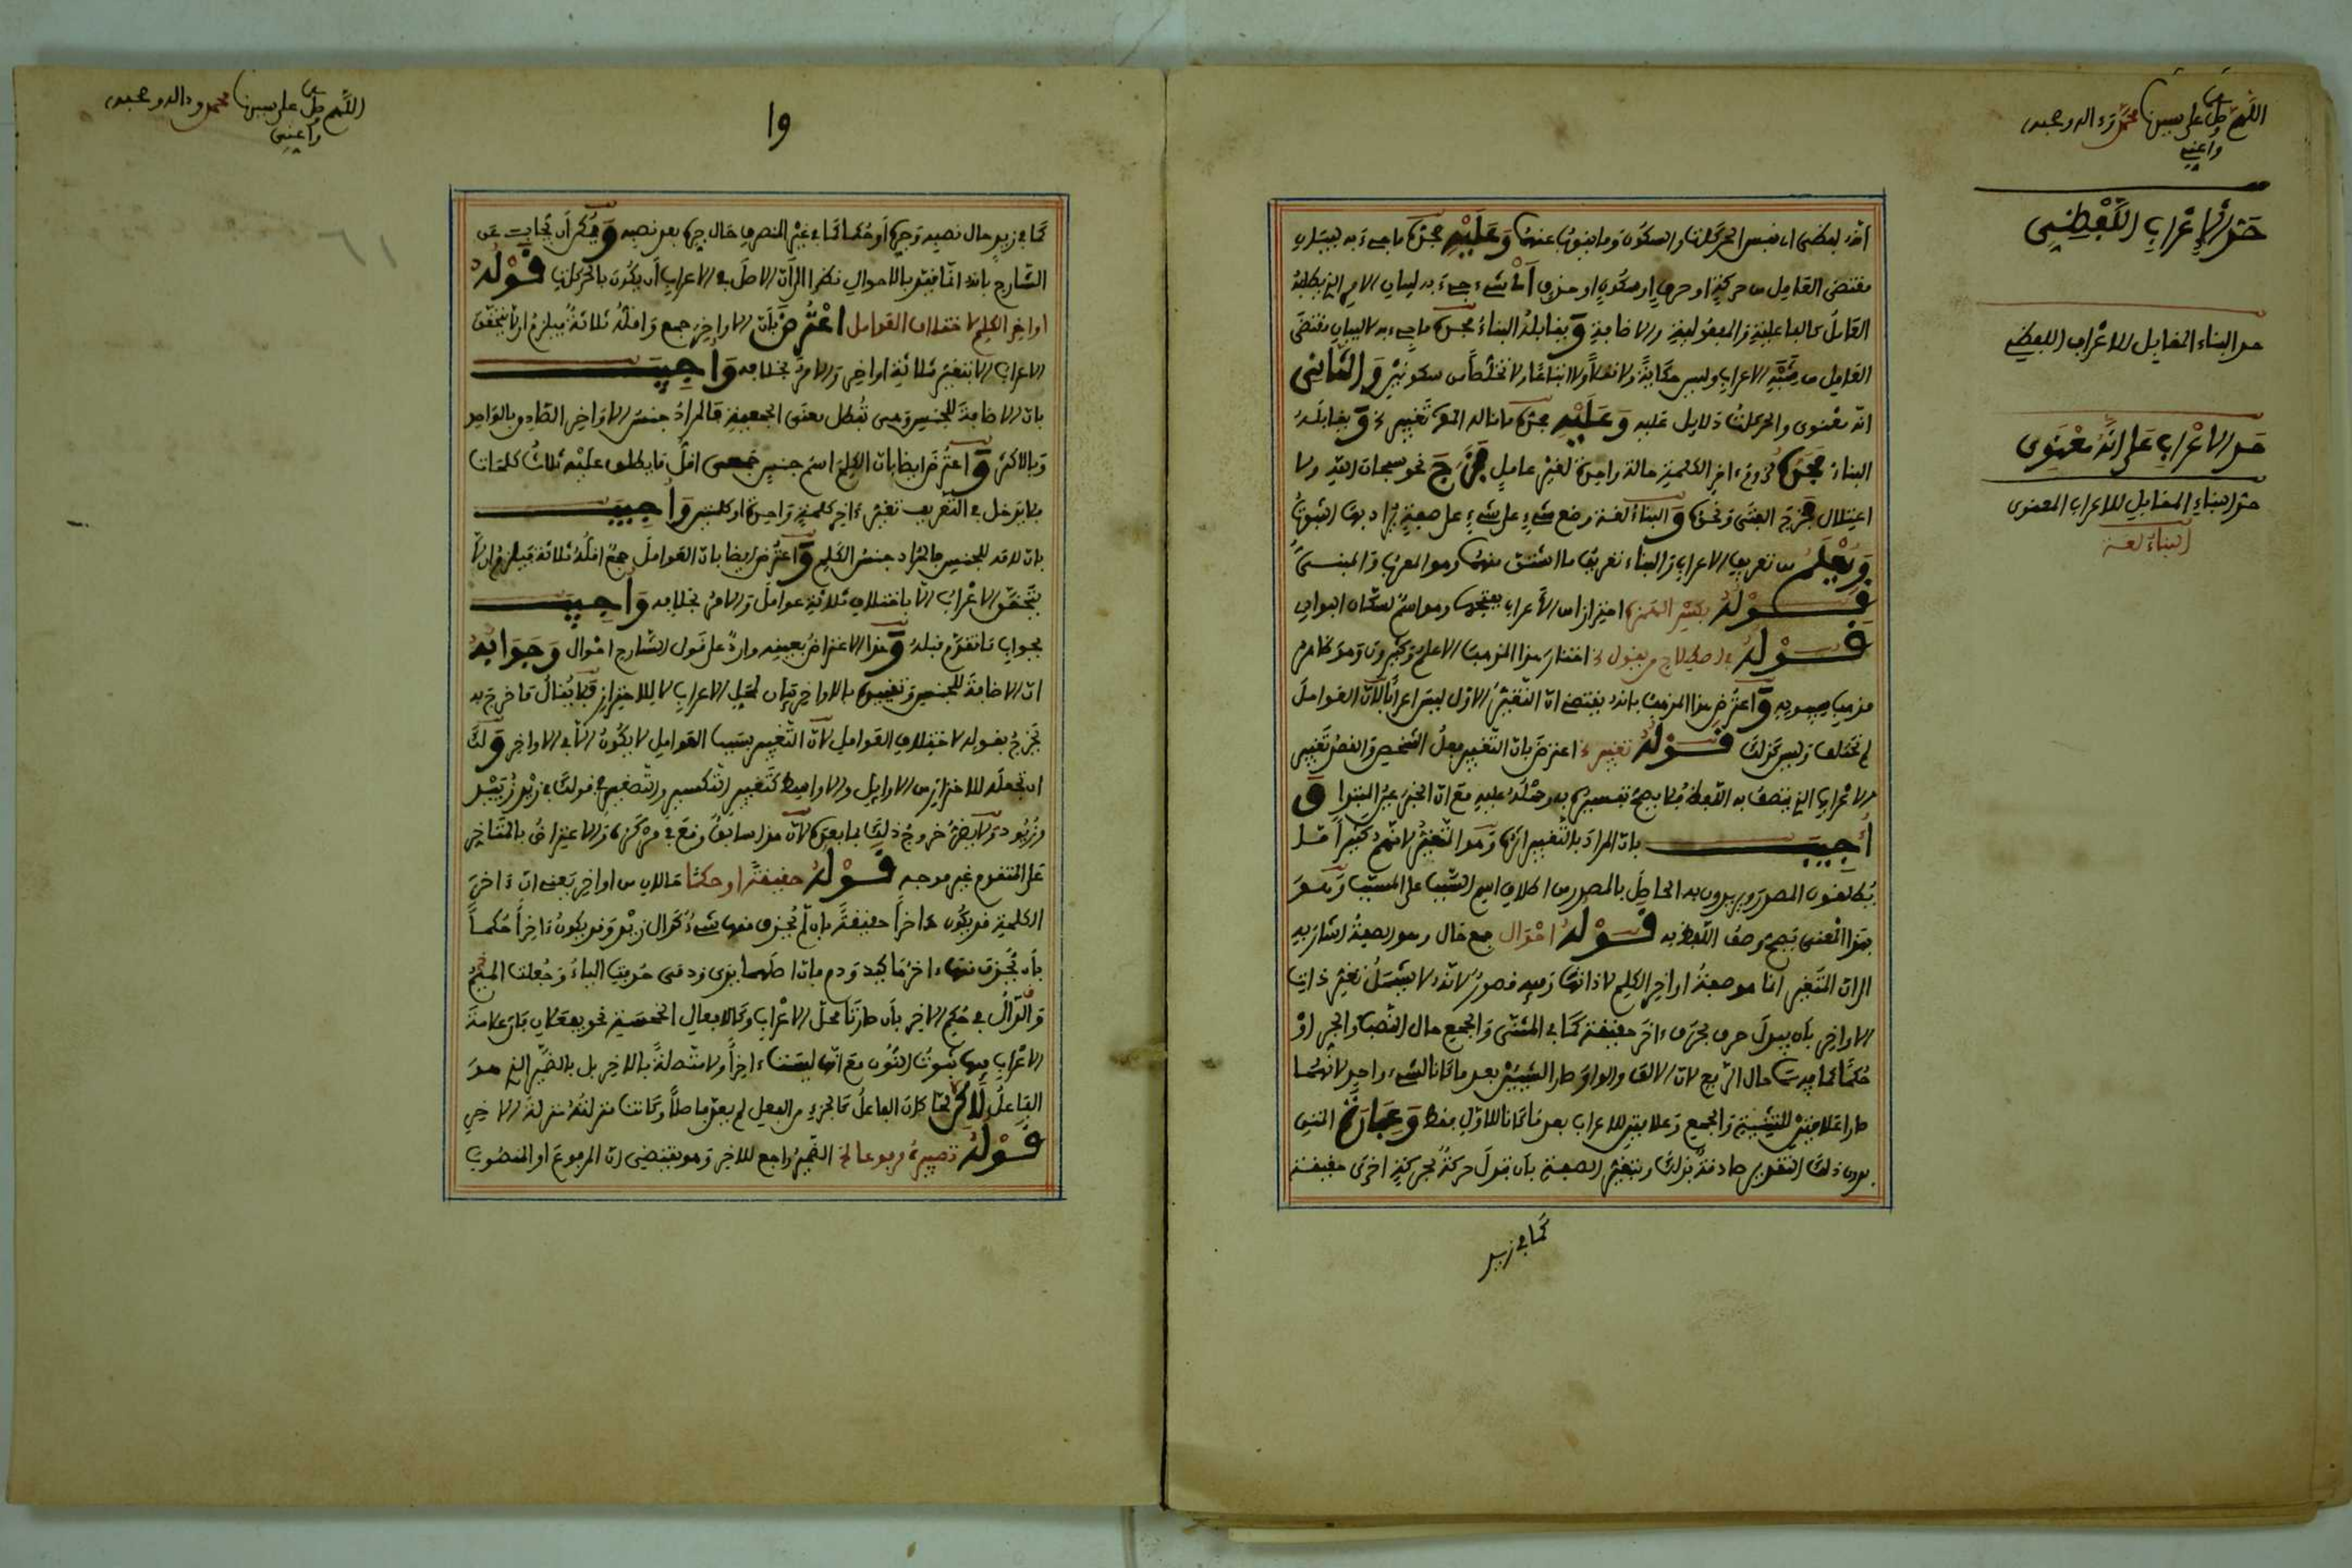 اللهم صل على سيدنا محمد وءاله وصحبه
واعني
حد الإعراب اللفظي
حد البناء المقابل للاعراب اللفظي
حد الاعراب على انه معنوي
حد البناء المقابل للاعراب المعنوي
البناء لغة
انه لفظي انه نفس الحركات والسكون وما ينوب عنها وعليه فحده ما جيء به لبيان
مقتضى العامل من حركة او حرف او سكون او حذف اي شيء جيء به لبيان الامر الذي يطلبه
العامل كالفاعلية والمفعولية والاضافة ويقابله البناء فحده ما جيء به لا لبيان مقتضى
العامل من شبه الاعراب وليس حكاية ولا نقلا ولا اتباعا ولا تخلصا من سكونين والثاني
انه معنوي والحركات دلايل عليه وعليه فحده ما قاله المص تغيير الخ ويقابله
البناء فحده لزوم ءاخر الكلمة حالة واحدة لغير عامل فخرج نحو سبحان الله ولا
اعتلال فخرج الفتى ونحوه والبناء لغة وضع شيء على شيء على صفة يراد بها الثبوت
ويعلم من تعريف الاعراب والبناء تعريف ما اشتق منهما وهو المعرب والمبني
قوله بكسر الهمزة احترازا من الأعراب بفتحها وهو اسم لسكان البوادي
قوله في اصطلاح من يقول الخ اختار هذا المذهب الاعلم وكثيرون وهو ظاهر
مذهب سيبويه واعترض هذا المذهب بانه يقتضي ان التغيير الاول ليس اعرابا لان العوامل
لم تختلف وليس كذلك قوله تغيير الخ اعترض بان التغيير فعل الشخص والفرض تغيير
الاعراب الذي يتصف به اللفظ فلا يصح تفسيره به وحمله عليه مع ان الخبر عين المبتدا و
أجيب بان المراد بالتغيير اثره وهو التغير لانهم كثيرا ما
يطلقون المصدر ويريدون به الحاصل بالمصدر من اطلاق اسم السبب على المسبب وهو
بهذا المعنى يصح وصف اللفظ به قوله احوال جمع حال وهو الصفة اشار به
الى ان المتغير انما هو صفة اواخر الكلم لا ذاتها وفيه قصور لانه لا يشمل تغير ذات
الاواخر بان يبدل حرف بحرف ءاخر حقيقة كما في المثنى والجمع حال النصب والجر او
حكما كما فيهما حال الرفع لان الالف والواو صارا لشيئين بعد ما كانا لشيء واحد لانهما
صارا علامتين للتثنية والجمع وعلامتين للاعراب بعد ما كانا للاول فقط وعبارة المتن
بدون ذلك التقدير صادقة بذلك وبتغير الصفة بان تبدل حركة بحركة اخرى حقيقة
كما في زيد
اللهم صل على سيدنا محمد وءاله وصحبه
واعني
١٩
كما في زيد حال نصبه وجره أو حكما كما في غير المنصرف حال جره بعد نصبه ويمكن أن يجاب عن
الشارح بانه انما فيد بالاحوال نظرا الى أن الاصل في الاعراب أن يكون بالحركات قوله
اواخر الكلم لاختلاف العوامل اعترض بان الاواخر جمع واقله ثلاثة فيلزم ان لا يتحقق
الاعراب الا بتغير ثلاثة اواخر والامر بخلافه واجيب
بان الاضافة للجنس وهي تبطل معنى الجمعية فالمراد جنس الاواخر الصادق بالواحد
وبالاكثر واعترض ايضا بان الكلم اسم جنس جمعي اقل ما يطلق عليه ثلاث كلمات
فلا يدخل في التعريف تغير ءاخر كلمة واحدة او كلمتين واجيب
بان ال فيه للجنس فالمراد جنس الكلم واعترض ايضا بان العوامل جمع اقله ثلاثة فيلزم ان لا
يتحقق الاعراب الا باختلاف ثلاثة عوامل والامر بخلافه واجيب
بجواب ما تقدم قبله وهذا الاعتراض بعينه وارد على قول الشارح احوال وجوابه
ان الاضافة للجنس وتقييده بالاواخر بيان لمحل الاعراب لا للاحتراز فلا يقال ما خرج به
يخرج بقوله لاختلاف العوامل لان التغيير بسبب العوامل لا يكون الا في الاواخر ولك
ان تجعله للاحتراز من الاوايل والاواسط كتغيير التكسير والتصغير في قولك في زيد زييد
وزيود ولا يضر خروج ذلك بما بعده لان هذا سابق وقع في مركزه والاعتراض بالمتاخر
على المتقدم غير موجه قوله حقيقة او حكما حالان من اواخر يعني ان ءاخر
الكلمة قد يكون ءاخرا حقيقة بان لم يحذف منها شيء كدال زيد وقد يكون ءاخرا حكما
بأن يحذف منها ءاخرها كيد ودم فان اصلهما يدي ودمي حذفت الياء وجعلت الميم
والدال في حكم الاخر بان صارتا محل الاعراب وكالافعال الخمسة نحو يفعلان فان علامة
الاعراب فيها ثبوت النون مع انها ليست ءاخرا ولا متصلة بالاخر بل بالضمير الذي هو
الفاعل لاكن لما كان الفاعل كالجزء من الفعل لم يعد فاصلا وكانت منزلته منزلة الاخر
قوله تصييره مرفوعا الخ الضمير راجع للاخر وهو يقتضي ان المرفوع او المنصوب